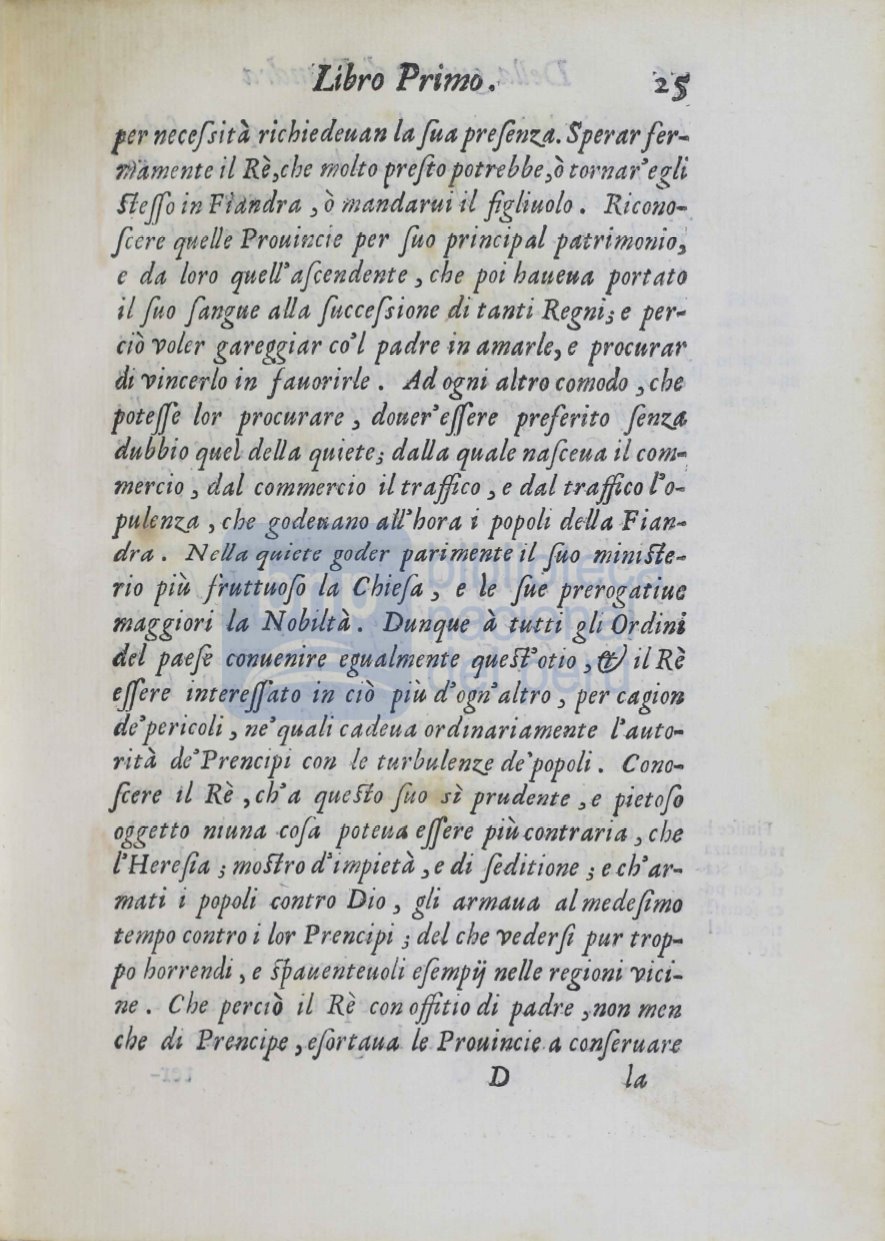 Libro Primo. 25
per necessità richiedeuan la sua presenza. Sperar fer-
mamente il Rè, che molto presto potrebbe, ò tornar'egli
stesso in Fiandra, ò mandarui il figliuolo. Ricono-
scere quelle Prouincie per suo principal patrimonio,
e da loro quell'ascendente, che poi haueua portato
il suo sangue alla successione di tanti Regni; e per-
ciò voler gareggiar co'l padre in amarle, e procurar
di vincerlo in fauorirle. Ad ogni altro comodo, che
potesse lor procurare, douer'essere preferito senza
dubbio quel della quiete; dalla quale nasceua il com-
mercio, dal commercio il traffico, e dal traffico l'o-
pulenza, che godeuano all'hora i popoli della Fian-
dra. Nella quiete goder parimente il suo ministe-
rio più fruttuoso la Chiesa, e le sue prerogatiue
maggiori la Nobiltà. Dunque à tutti gli Ordini
del paese conuenire egualmente quest'otio, & il Rè
essere interessato in ciò più d'ogn'altro, per cagion
de'pericoli, ne'quali cadeua ordinariamente l'auto-
rità de'Prencipi con le turbulenze de'popoli. Cono-
scere il Rè, ch'a questo suo sì prudente, e pietoso
oggetto niuna cosa poteua essere più contraria, che
l'Heresia; mostro d'impietà, e di seditione; e ch'ar-
mati i popoli contro Dio, gli armaua al medesimo
tempo contro i lor Prencipi; del che vedersi pur trop-
po horrendi, e spauenteuoli esempij nelle regioni vici-
ne. Che perciò il Rè con offitio di padre, non men
che di Prencipe, esortaua le Prouincie a conseruare
D la
biblioteca
nacional
del perú